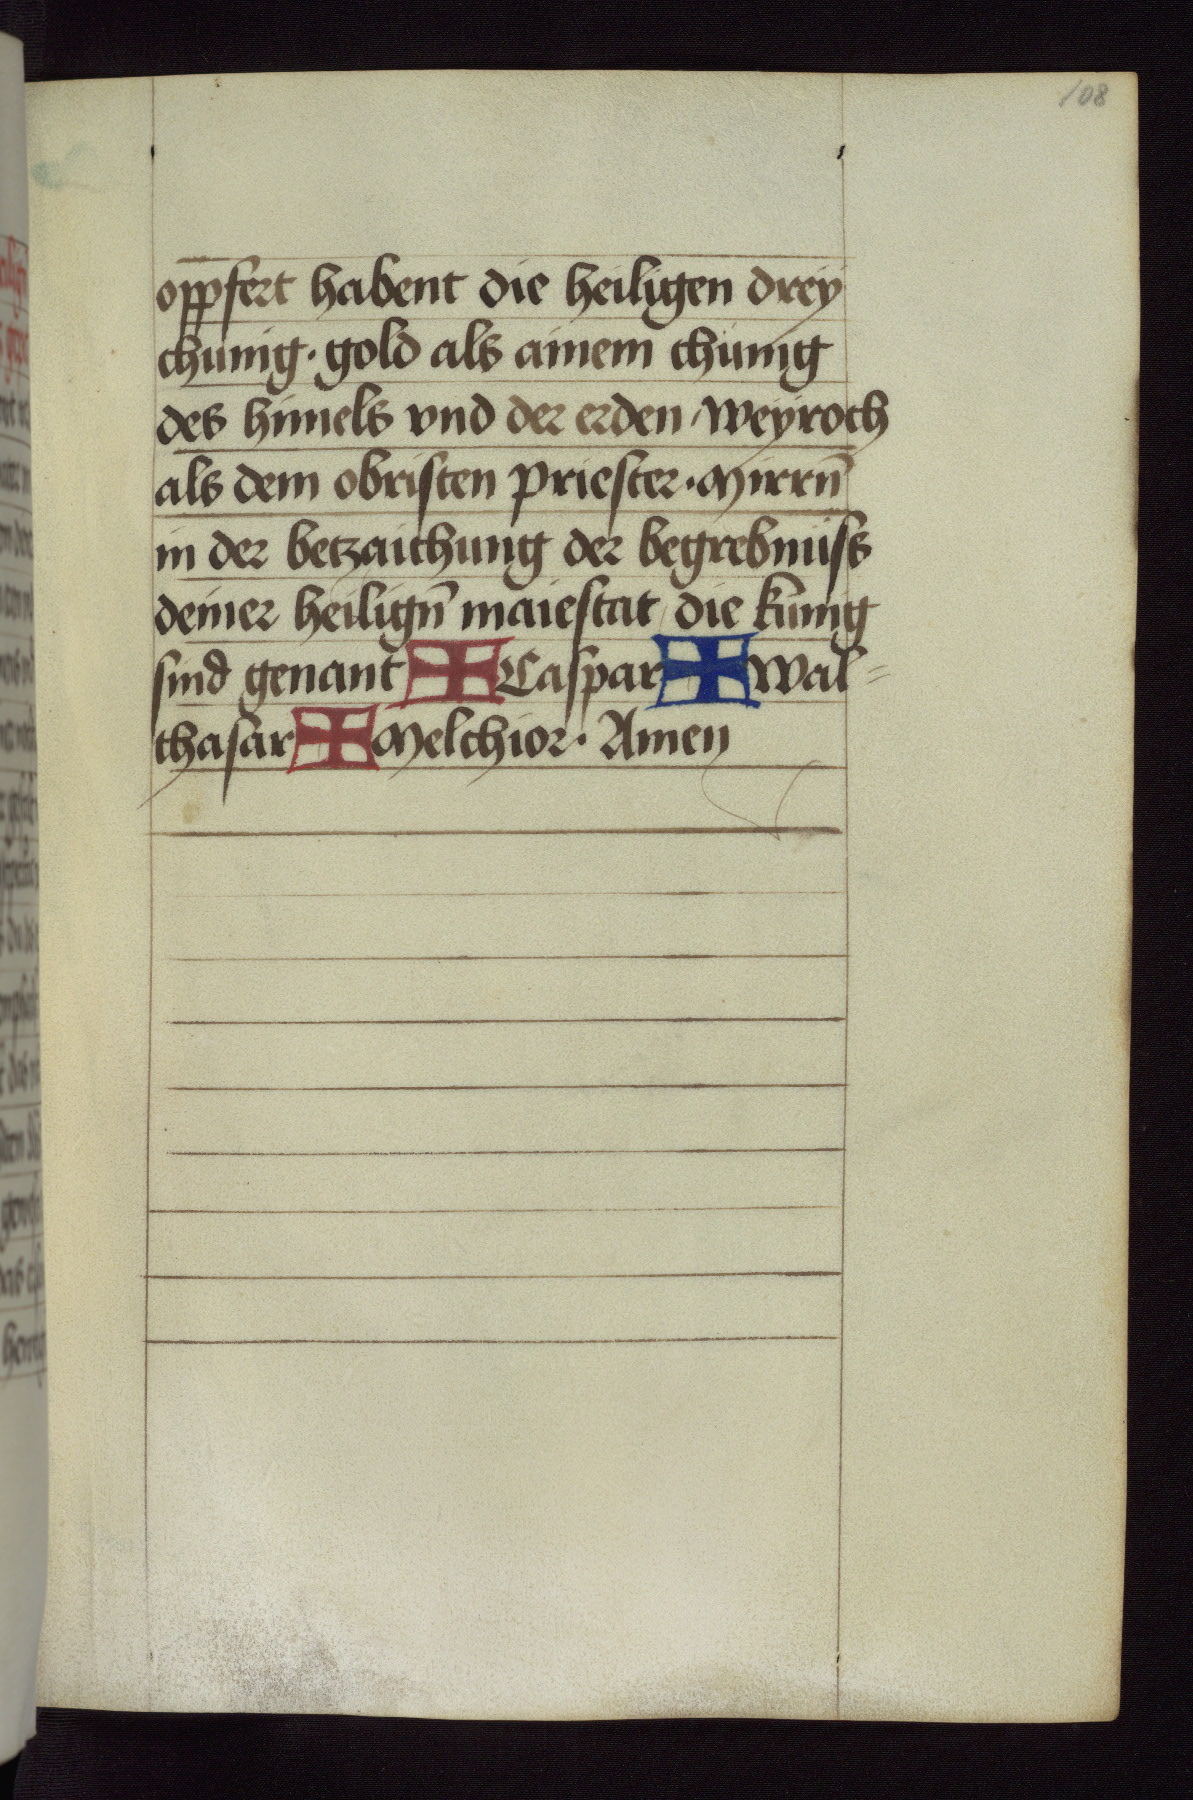 108
opp̄fert habent die heiligen dreÿ
chünig · gold als ainem chünig
des himels vnd der erden / weÿroch
als dem obristen priester · Mirrn̄
in der betzaichung der begrebnüss
deiner heilign̄ maiestat / die künig
sind genant ✠ Caspar ✠ Wal=
thasar ✠ Melchior · Amen